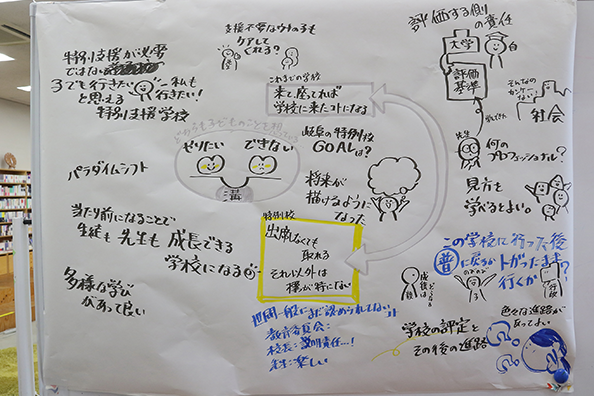 支援不要なウチの子も
ケアしてくれる?
特別支援が必要
ではない
子でも行きたい!
と思える
特別支援学校
私も
行きたい!
これまでの学校
来て座ってれば
学校に来たコトになる
評価する側の責任
大学
評価
基準
社会
先生
何の
プロフェッショナル?
見方も
学べるとよい。
どちらも子どものことを想っている
やりたい
できない
溝
岐阜の特例校
GOALは?
将来が
描けるように
なった
パラダイムシフト
当たり前になることで
生徒も先生も成長できる
学校になる
多様な学び
があって良い
特例校
出席しなくても
取れる
それ以外は
様が特にない
世間一般にまだ認められてないコト
教育委員会:
校長:説明責任…!
先生:楽しい
この学校に行った後
普に戻るかトガったまま
行くか?
学校の評定と
その後の進路
色々な進路が
あってよい。